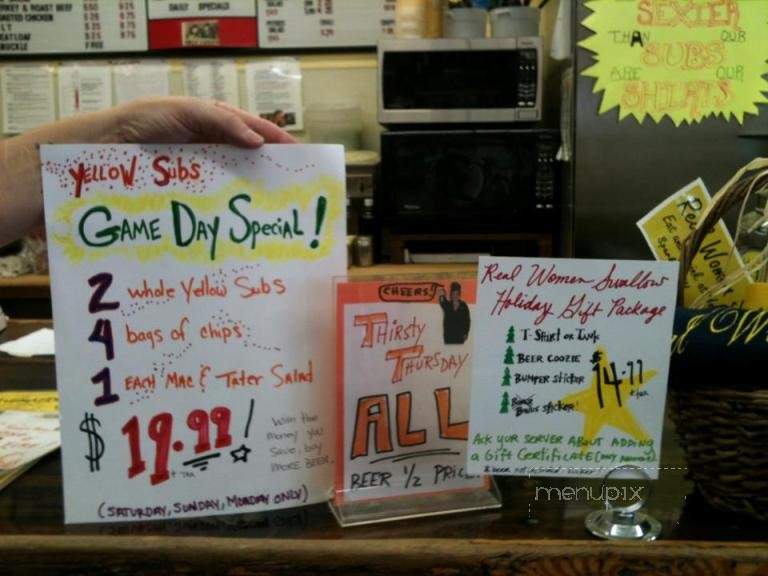 DAILY SPECIALS
SEXIER
THAN OUR
SUBS
ARE OUR
SHIRTS
YELLOW SUBS
GAME DAY SPECIAL!
2 whole Yellow Subs
4 bags of chips
1 EACH MAC & TATER SALAD
$19.99!
+ TAX
With the
money you
save, buy
MORE BEER.
(SATURDAY, SUNDAY, MONDAY ONLY)
CHEERS!
THIRSTY
THURSDAY
ALL
BEER 1/2 PRICE
Real Women Swallow
Holiday Gift Package
T-SHIRT OR TANK
BEER COOZIE
BUMPER STICKER
BONUS STICKER!
$14.99
+ TAX
ASK YOUR SERVER ABOUT ADDING
A GIFT CERTIFICATE (ANY AMOUNT)
menupix